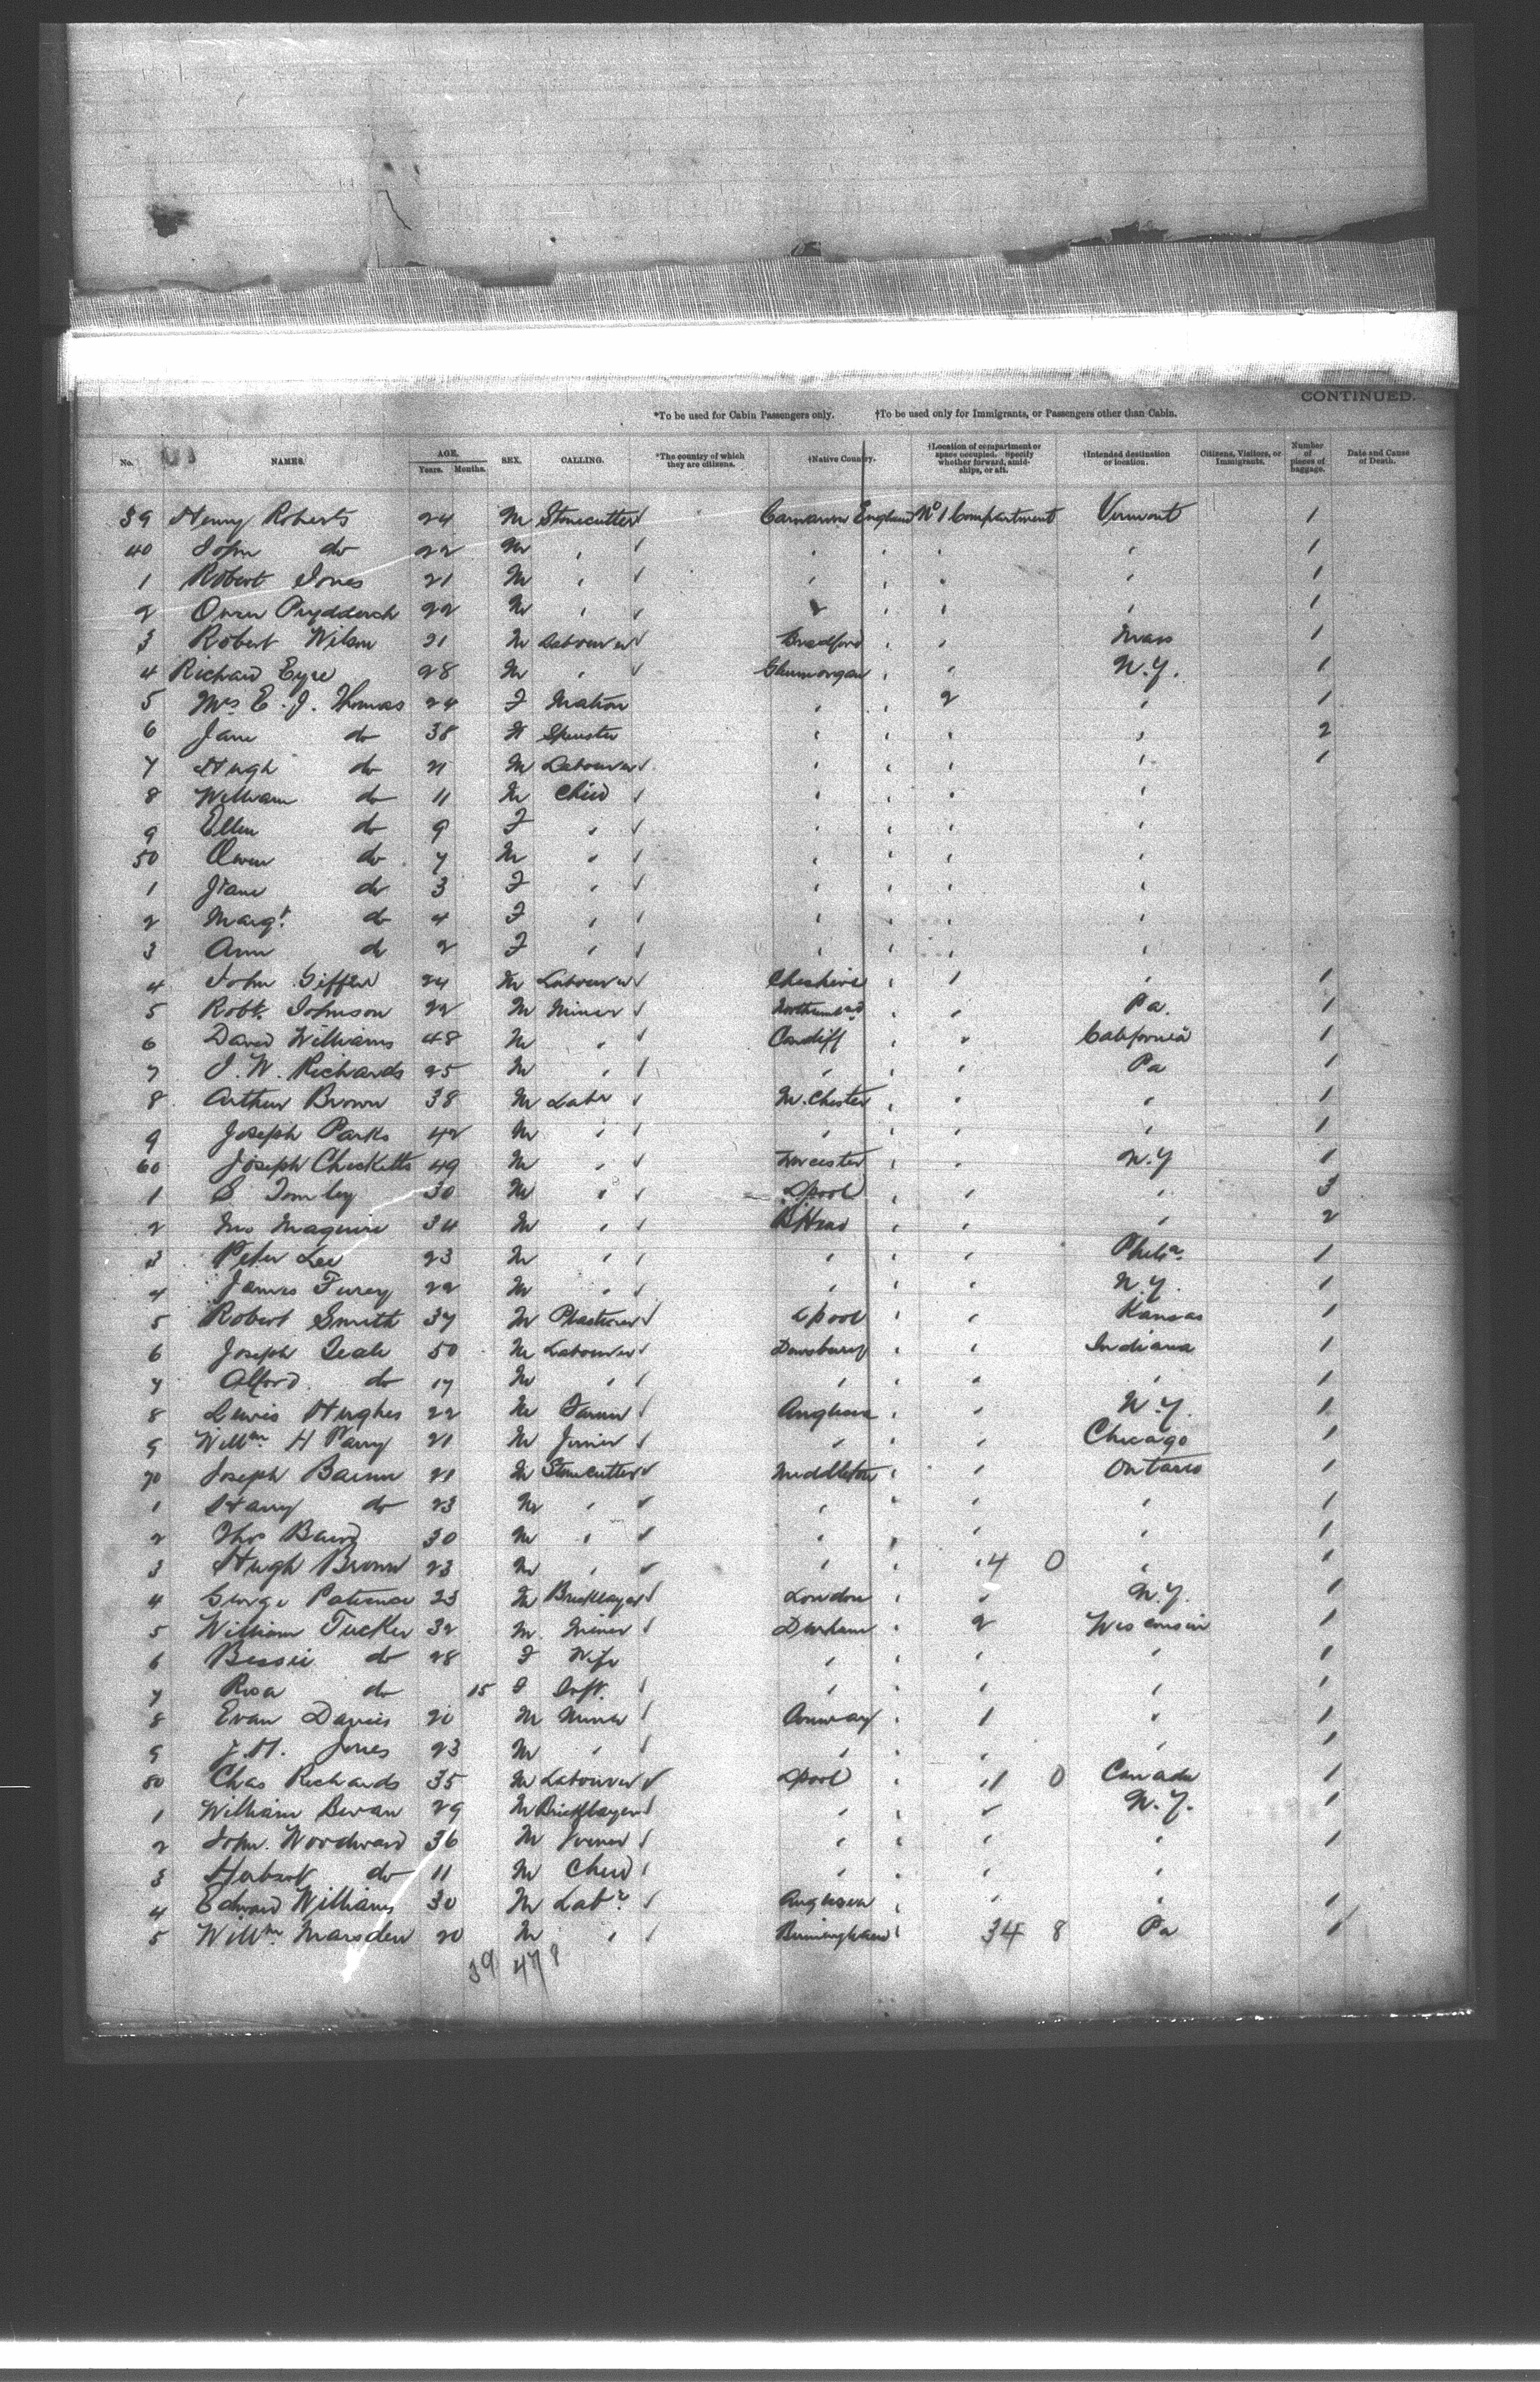 CONTINUED.
*To be used for Cabin Passengers only. †To be used only for Immigrants, or Passengers other than Cabin.
No. NAMES. AGE. Years. Months. SEX. CALLING. *The country of which they are citizens. †Native Country. †Location of compartment or space occupied. Specify whether forward, amidships, or aft. †Intended destination or location. Citizens, Visitors, or Immigrants. Number of pieces of baggage. Date and Cause of Death.
39 Henry Roberts 24 M Stonecutter Carnarvon England No 1 Compartment Vermont 1
40 John do 22 M " " " " " 1
1 Robert Jones 21 M " " " " " 1
2 Owen Prydderch 22 M " " " " 1
3 Robert Wilson 21 M Labourer Bradford " " Mass 1
4 Richard Eyre 28 M " Glamorgan " " N.Y. 1
5 Mrs E. J. Thomas 24 F Matron " " 2 " 1
6 Jane do 38 F Spinster " " " " 2
7 Hugh do 21 M Labourer " " " " 1
8 William do 11 M Child " " " "
9 Ellen do 9 F " " " " "
50 Owen do 7 M " " " " "
1 Jane do 3 F " " " " "
2 Margt do 4 F " " " " "
3 Ann do 2 F " " " " "
4 John Giffen 24 M Labourer Cheshire " 1 " 1
5 Robt. Johnson 22 M Miner " " Pa. 1
6 David Williams 48 M " Cardiff " California 1
7 J. W. Richards 25 M " " " Pa 1
8 Arthur Brown 38 M Labr M.Chester " " " 1
9 Joseph Parks 42 M " " " " " 1
60 Joseph Checketts 49 M " Worcester " " N.Y 1
1 S Tomley 30 M " Lpool " " " 3
2 Maguire 34 M " B'Head " " " 2
3 Peter Lee 23 M " " " " Phila. 1
4 James Furey 22 M " " " " N.Y. 1
5 Robert Smith 37 M Plasterer Lpool " " Kansas 1
6 Joseph Teale 50 M Labourer Dewsbury " " Indiana 1
7 Alford do 17 M " " " " " 1
8 Lewis Hughes 22 M Farmer Anglesea " " N.Y. 1
9 Willm H Parry 21 M Joiner " " Chicago 1
70 Joseph 21 M Stonecutter Middleton " " Ontario 1
1 Harry do 23 M " " " " " 1
2 Thos Baird 30 M " " " " " 1
3 Hugh Brown 23 M " " " 4 0 " 1
4 George 23 M Bricklayer London " " N.Y. 1
5 William Tucker 32 M. Miner Durham " 2 Wisconsin 1
6 Bessie do 28 F Wife " " " " 1
7 Rosa do 15 F Inft. " " " " 1
8 Evan Davies 20 M Miner Conway " 1 " 1
9 J.H. Jones 23 M " " " " " 1
80 Chas Richards 35 M Labourer Lpool " 1 0 Canada 1
1 William Bevan 29 M Bricklayer " " " N.Y. 1
2 John Woodward 36 M Joiner " " " " 1
3 Herbert do 11 M Child " " " "
4 Edward Williams 30 M Labr Anglesea " " 1
5 Willm Marsden 20 M " Birmingham " 34 8 Pa 1
39 47 8